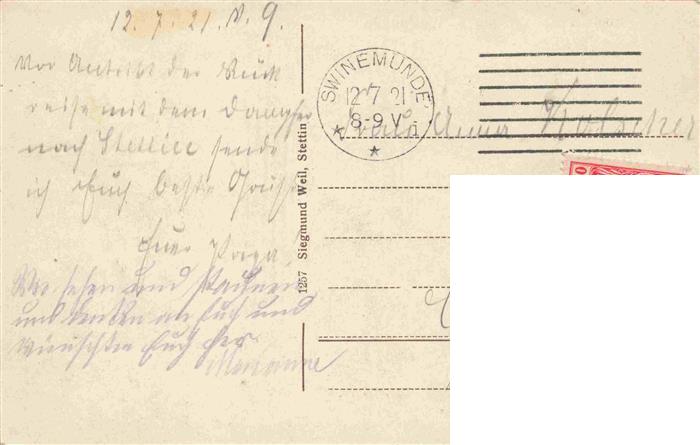 12. 7. 21. V. 9.
Vor Antritt der Rück
reise mit dem Dampfer
nach Stettin sende
ich Euch beste Grüße
Euer Papa!
Wir sehen und
und denken an Euch und
wünschten Euch her.
Marianne
1257 Siegmund Weil, Stettin
SWINEMÜNDE
12 7 21
8-9 V
Anna